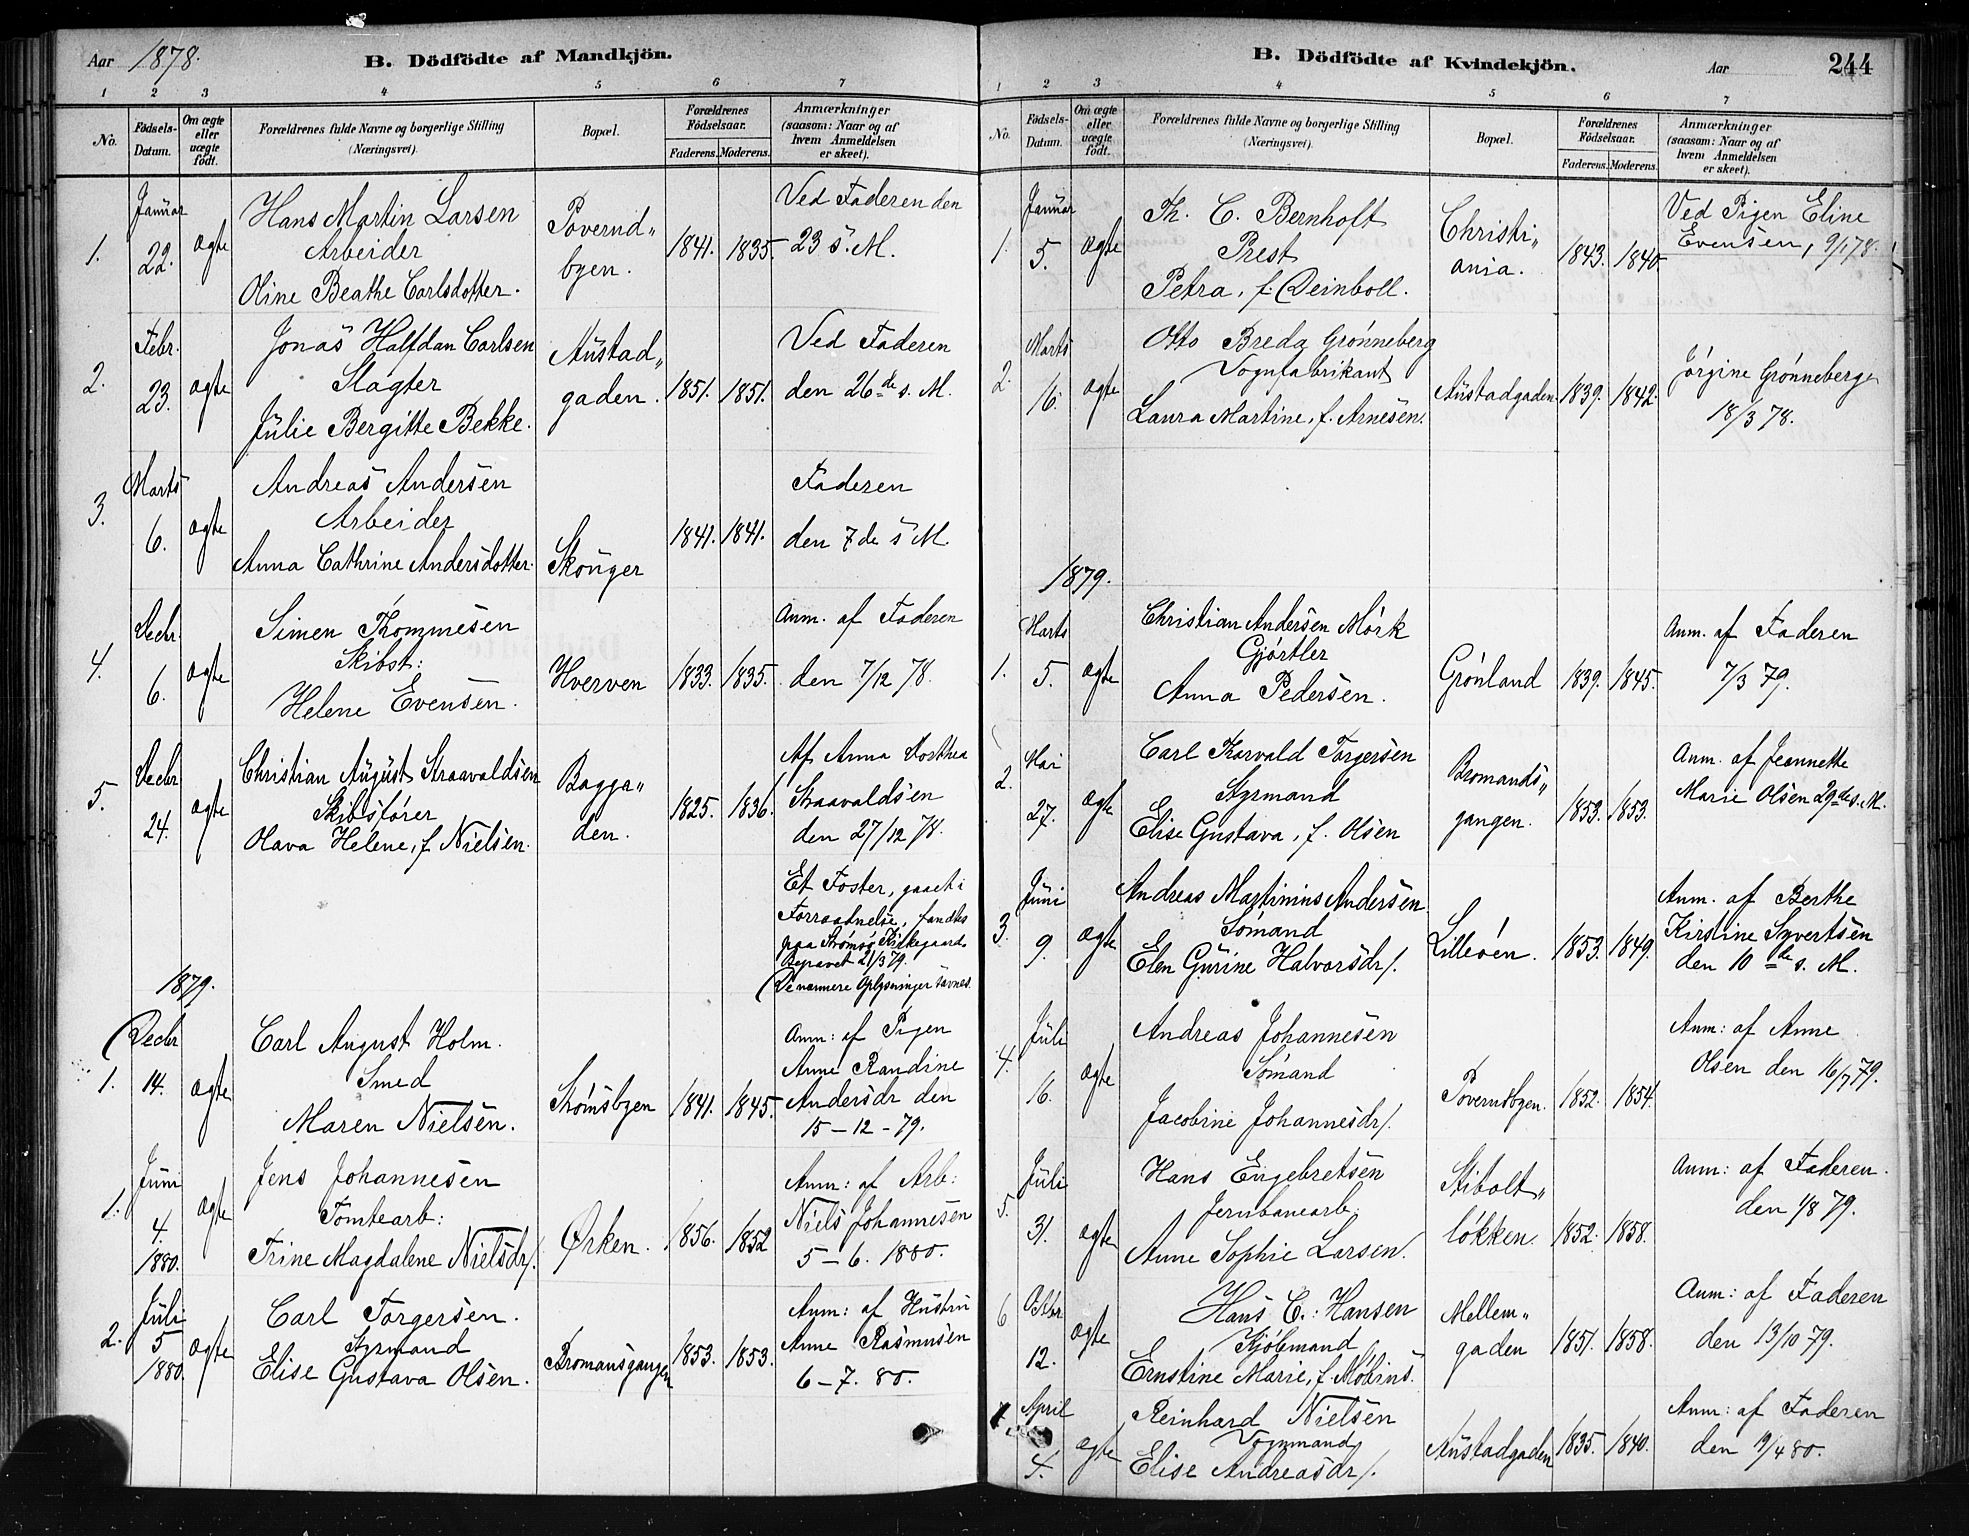 Aar 1878.
B. Dödfödte af Mandkjön.
1 2 3 4 5 6 7
No.
Födsels-Datum.
Om ægte eller uægte födt.
Forældrenes fulde Navne og borgerlige Stilling (Næringsvei).
Bopæl.
Forældrenes Födselsaar.
Faderens. Moderens.
Anmærkninger (saasom: Naar og af hvem Anmeldelsen er skeet).
1. Januar 22. ægte
Hans Martin Larsen
Arbeider
Oline Beathe Carlsdotter.
Povernd„
byen.
1841. 1835.
Ved Faderen den
23 s. M.
2. Febr. 23. ægte
Jonas Halfdan Carlsen
Slagter
Julie Bergitte Bekke.
Austad„
gaden.
1851. 1851.
Ved Faderen
den 26de s. M.
3. Marts 6. ægte
Andreas Andersen
Arbeider
Anna Cathrine Andersdotter.
Skonger
1841. 1841.
Faderen
den 7de s M.
4. Decbr. 6. ægte
Simen Thommesen
Skibst:
Helene Evensen.
Hverven
1833. 1835.
Anm. af Faderen
den 7/12 78.
5. Decbr 24. ægte
Christian August Straavaldsen
Skibsfører
Olava Helene, f. Nielsen.
Bagga„
den.
1825. 1836.
Af Anna Dorthea
Straavaldsen
den 27/12 78.
Et Foster, gaaet i
Forraadnelse, fandtes
paa Strømsø Kirkegaard
Begravet 21/3 79.
(De nærmere Oplysninger savnes.
1879.
1. Decbr 14. ægte
Carl August Holm.
Smed
Maren Nielsen.
Strømsbyen
1841. 1845.
Anm: af Pigen
Anne Randine
Andersdr den
15-12-79.
1. Juni 4. 1880. ægte
Jens Johannesen
Tomtearb:
Trine Magdalene Nielsdr/.
Ørken.
1856. 1852
Anm: af Arb:
Niels Johannesen
5-6. 1880.
2. Juli 5 1880. ægte
Carl Torgersen.
Styrmand
Elise Gustava Olsen.
Bromansgangen
1853. 1853.
Anm: af Hustru
Anne Rasmusen
6-7. 80.
B. Dödfödte af Kvindekjön.
Aar
244
1 2 3 4 5 6 7
No.
Födsels-Datum.
Om ægte eller uægte födt.
Forældrenes fulde Navne og borgerlige Stilling (Næringsvei).
Bopæl.
Forældrenes Födselsaar.
Faderens. Moderens.
Anmærkninger (saasom: Naar og af hvem Anmeldelsen er skeet).
1. Januar 5. ægte
Th. C. Bernhoft
Prest
Petra, f. Deinboll.
Christi„
ania.
1843. 1840.
Ved Pigen Eline
Evensen, 9/1 78.
2. Marts 16. ægte
Otto Breda Grønneberg
Vognfabrikant
Laura Martine, f. Arnesen.
Austadgaden.
1839. 1842.
Jørgine Grønneberge
18/3 78.
1879.
1. Marts 5. ægte
Christian Andersen Mørk
Gjørtler
Anna Pedersen.
Grønland
1839. 1845.
Anm. af Faderen
7/3 79.
2. Mai 27. ægte
Carl Thorvald Torgersen
Styrmand
Elise Gustava, f. Olsen
Bromands„
gangen.
1853. 1853.
Anm. af Jeannette
Marie Olsen 29de s. M.
3. Juni 9. ægte
Andreas Martinius Andersen
Sømand
Elen Gurine Halvorsdr/.
Lilleøen.
1853. 1849.
Anm. af Berthe
Kirstine Syvertsen
den 10de s. M.
4. Juli 16. ægte
Andreas Johannesen
Sømand
Jacobine Johannesdr/.
Poverndbyen.
1852. 1854.
Anm: af Anne
Olsen den 16/7 79.
5. Juli 31. ægte
Hans Engebretsen
Jernbanearb.
Anne Sophie Larsen/.
Stibolt„
løkken.
1852. 1858.
Anm: af Faderen.
den 1/8 79.
6 Octbr 12. ægte
Hans C. Hansen
Kjøbmand
Ernstine Marie, f. Møbius.
Mellem„
gaden
1851. 1858.
Anm: af Faderen
den 13/10 79.
1. April 4. ægte
Reinhard Nielsen
Vognmand
Elise Andreasdr/.
Austadgaden
1835. 1840.
Anm: af Faderen
den 9/4 80.